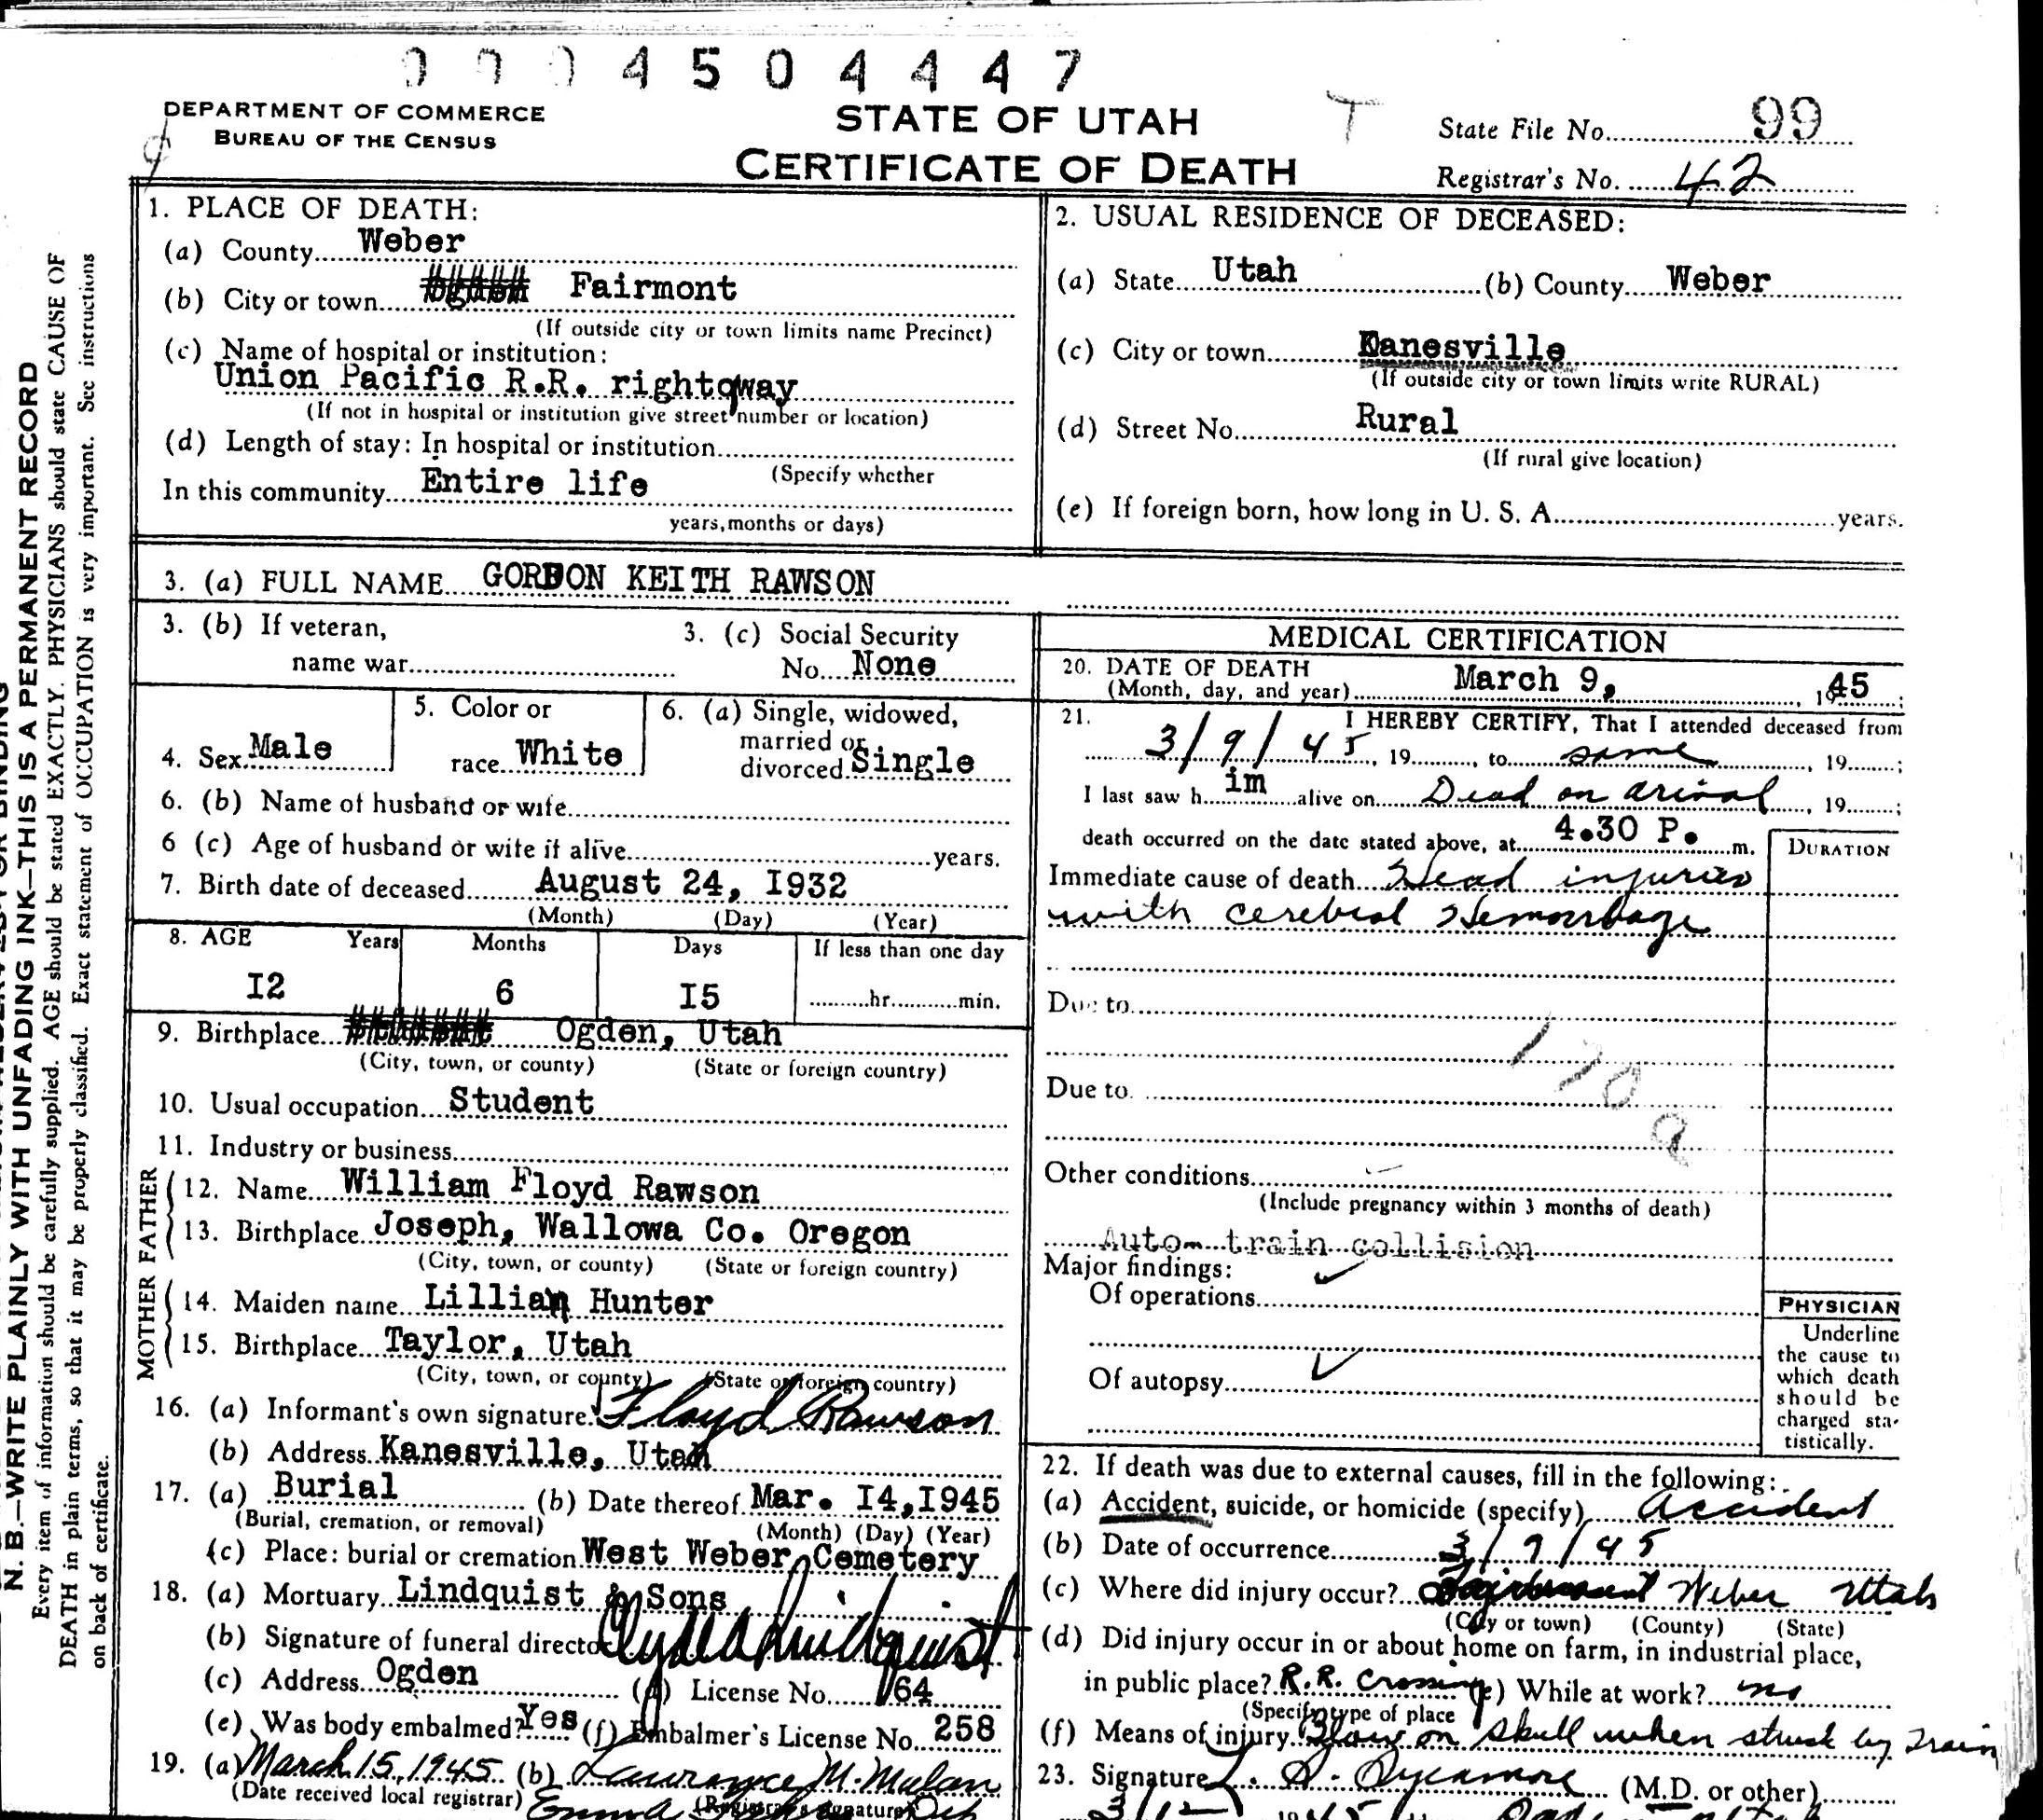 0 0 0 4 5 0 4 4 4 7
DEPARTMENT OF COMMERCE
BUREAU OF THE CENSUS
STATE OF UTAH
CERTIFICATE OF DEATH
T
State File No. 99
Registrar's No. 42
N. B.—WRITE PLAINLY WITH UNFADING INK—THIS IS A PERMANENT RECORD
Every item of information should be carefully supplied. AGE should be stated EXACTLY. PHYSICIANS should state CAUSE OF
DEATH in plain terms, so that it may be properly classified. Exact statement of OCCUPATION is very important. See instructions
on back of certificate.
1. PLACE OF DEATH:
(a) County Weber
(b) City or town Fairmont
(If outside city or town limits name Precinct)
(c) Name of hospital or institution:
Union Pacific R.R. rightoway
(If not in hospital or institution give street number or location)
(d) Length of stay: In hospital or institution
(Specify whether
In this community Entire life
years, months or days)
2. USUAL RESIDENCE OF DECEASED:
(a) State Utah (b) County Weber
(c) City or town Kanesville
(If outside city or town limits write RURAL)
(d) Street No. Rural
(If rural give location)
(e) If foreign born, how long in U. S. A. years.
3. (a) FULL NAME GORDON KEITH RAWSON
3. (b) If veteran,
name war
3. (c) Social Security
No. None
4. Sex Male
5. Color or
race White
6. (a) Single, widowed,
married or
divorced Single
6. (b) Name of husband or wife
6 (c) Age of husband or wife if alive years.
7. Birth date of deceased August 24, I932
(Month) (Day) (Year)
8. AGE Years Months Days If less than one day
I2 6 I5 hr. min.
9. Birthplace Ogden, Utah
(City, town, or county) (State or foreign country)
10. Usual occupation Student
11. Industry or business
FATHER
12. Name William Floyd Rawson
13. Birthplace Joseph, Wallowa Co. Oregon
(City, town, or county) (State or foreign country)
MOTHER
14. Maiden name Lillian Hunter
15. Birthplace Taylor, Utah
(City, town, or county) (State or foreign country)
16. (a) Informant's own signature Floyd Rawson
(b) Address Kanesville, Utah
17. (a) Burial (b) Date thereof Mar. I4, I945
(Burial, cremation, or removal) (Month) (Day) (Year)
(c) Place: burial or cremation West Weber Cemetery
18. (a) Mortuary Lindquist & Sons
(b) Signature of funeral director Clyde Lindquist
(c) Address Ogden (d) License No. 64
(e) Was body embalmed? Yes (f) Embalmer's License No. 258
19. (a) March 15, 1945 (b) Lawrance M. Malan
(Date received local registrar) (Registrar's signature)
MEDICAL CERTIFICATION
20. DATE OF DEATH
(Month, day, and year) March 9, 1945;
21. I HEREBY CERTIFY, That I attended deceased from
3/9/45, 19, to same, 19;
I last saw him alive on Dead on arival, 19;
death occurred on the date stated above, at 4.30 P. m.
DURATION
Immediate cause of death Head injuries
with cerebral Hemorrhage
Due to
170a
Due to
Other conditions
(Include pregnancy within 3 months of death)
Auto- train collision
Major findings:
Of operations
Of autopsy
PHYSICIAN
Underline
the cause to
which death
should be
charged sta-
tistically.
22. If death was due to external causes, fill in the following:
(a) Accident, suicide, or homicide (specify) Accident
(b) Date of occurrence 3/9/45
(c) Where did injury occur? Weber Utah
(City or town) (County) (State)
(d) Did injury occur in or about home on farm, in industrial place,
in public place? R.R. Crossing (e) While at work? no
(Specify type of place
(f) Means of injury Blow on skull when struck by Train
23. Signature L. S. Sycamore (M.D. or other)